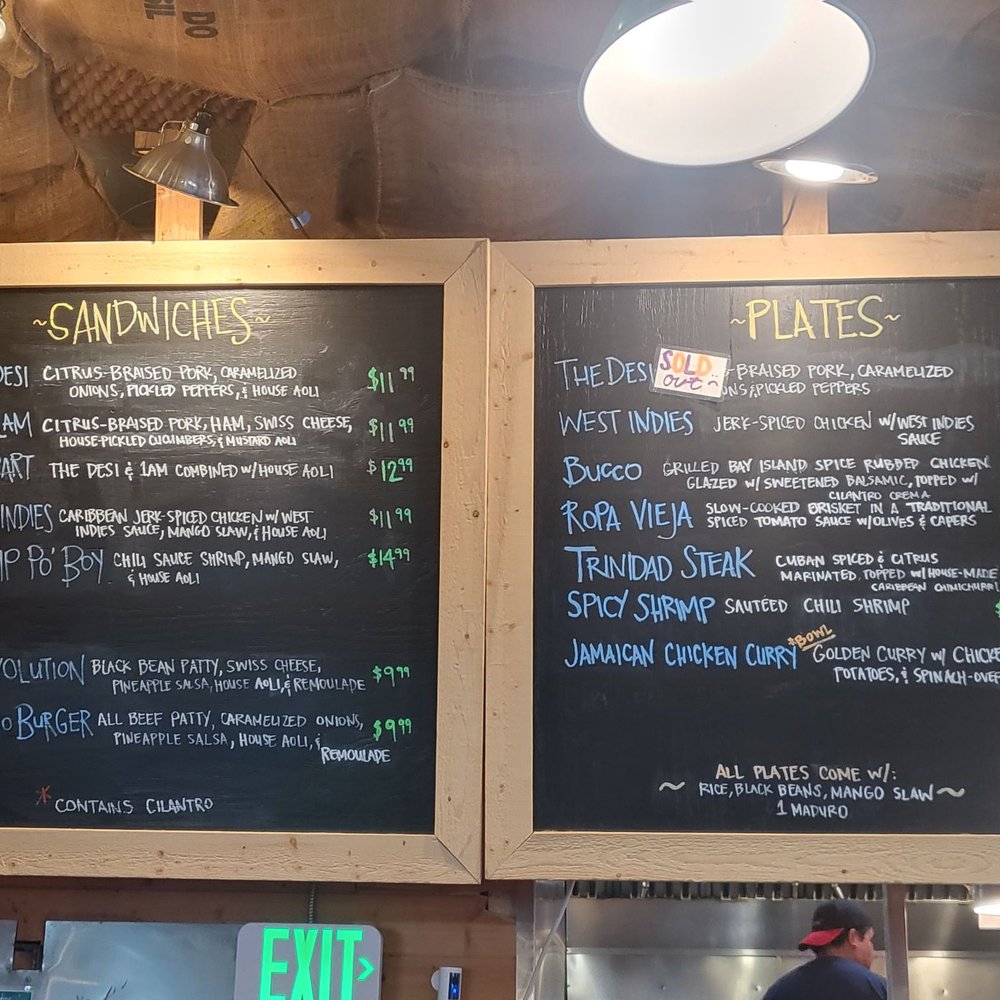 DO
~SANDWICHES~
DESI CITRUS-BRAISED PORK, CARAMELIZED
ONIONS, PICKLED PEPPERS, & HOUSE AOLI $11.99
AM CITRUS-BRAISED PORK, HAM, SWISS CHEESE,
HOUSE-PICKLED CUCUMBERS, & MUSTARD AOLI $11.99
ART THE DESI & 1AM COMBINED W/ HOUSE AOLI $12.99
INDIES CARIBBEAN JERK-SPICED CHICKEN W/ WEST
INDIES SAUCE, MANGO SLAW, & HOUSE AOLI $11.99
PO' BOY CHILI SAUCE SHRIMP, MANGO SLAW,
& HOUSE AOLI $14.99
OLUTION BLACK BEAN PATTY, SWISS CHEESE,
PINEAPPLE SALSA, HOUSE AOLI, & REMOULADE $9.99
O BURGER ALL BEEF PATTY, CARAMELIZED ONIONS,
PINEAPPLE SALSA, HOUSE AOLI, & $9.99
REMOULADE
* CONTAINS CILANTRO
~PLATES~
THE DESI SOLD -BRAISED PORK, CARAMELIZED
OUT NS, & PICKLED PEPPERS
WEST INDIES JERK-SPICED CHICKEN W/ WEST INDIES
SAUCE
BUCCO GRILLED BAY ISLAND SPICE RUBBED CHICKEN
GLAZED W/ SWEETENED BALSAMIC, TOPPED W/
CILANTRO CREMA
ROPA VIEJA SLOW-COOKED BRISKET IN A TRADITIONAL
SPICED TOMATO SAUCE W/ OLIVES & CAPERS
TRINIDAD STEAK CUBAN SPICED & CITRUS
MARINATED, TOPPED W/ HOUSE-MADE
CARIBBEAN CHIMICHURRI
SPICY SHRIMP SAUTÉED CHILI SHRIMP
*BOWL
JAMAICAN CHICKEN CURRY GOLDEN CURRY W/ CHICKE
POTATOES, & SPINACH-OVER
ALL PLATES COME W/:
~ RICE, BLACK BEANS, MANGO SLAW ~
1 MADURO
EXIT